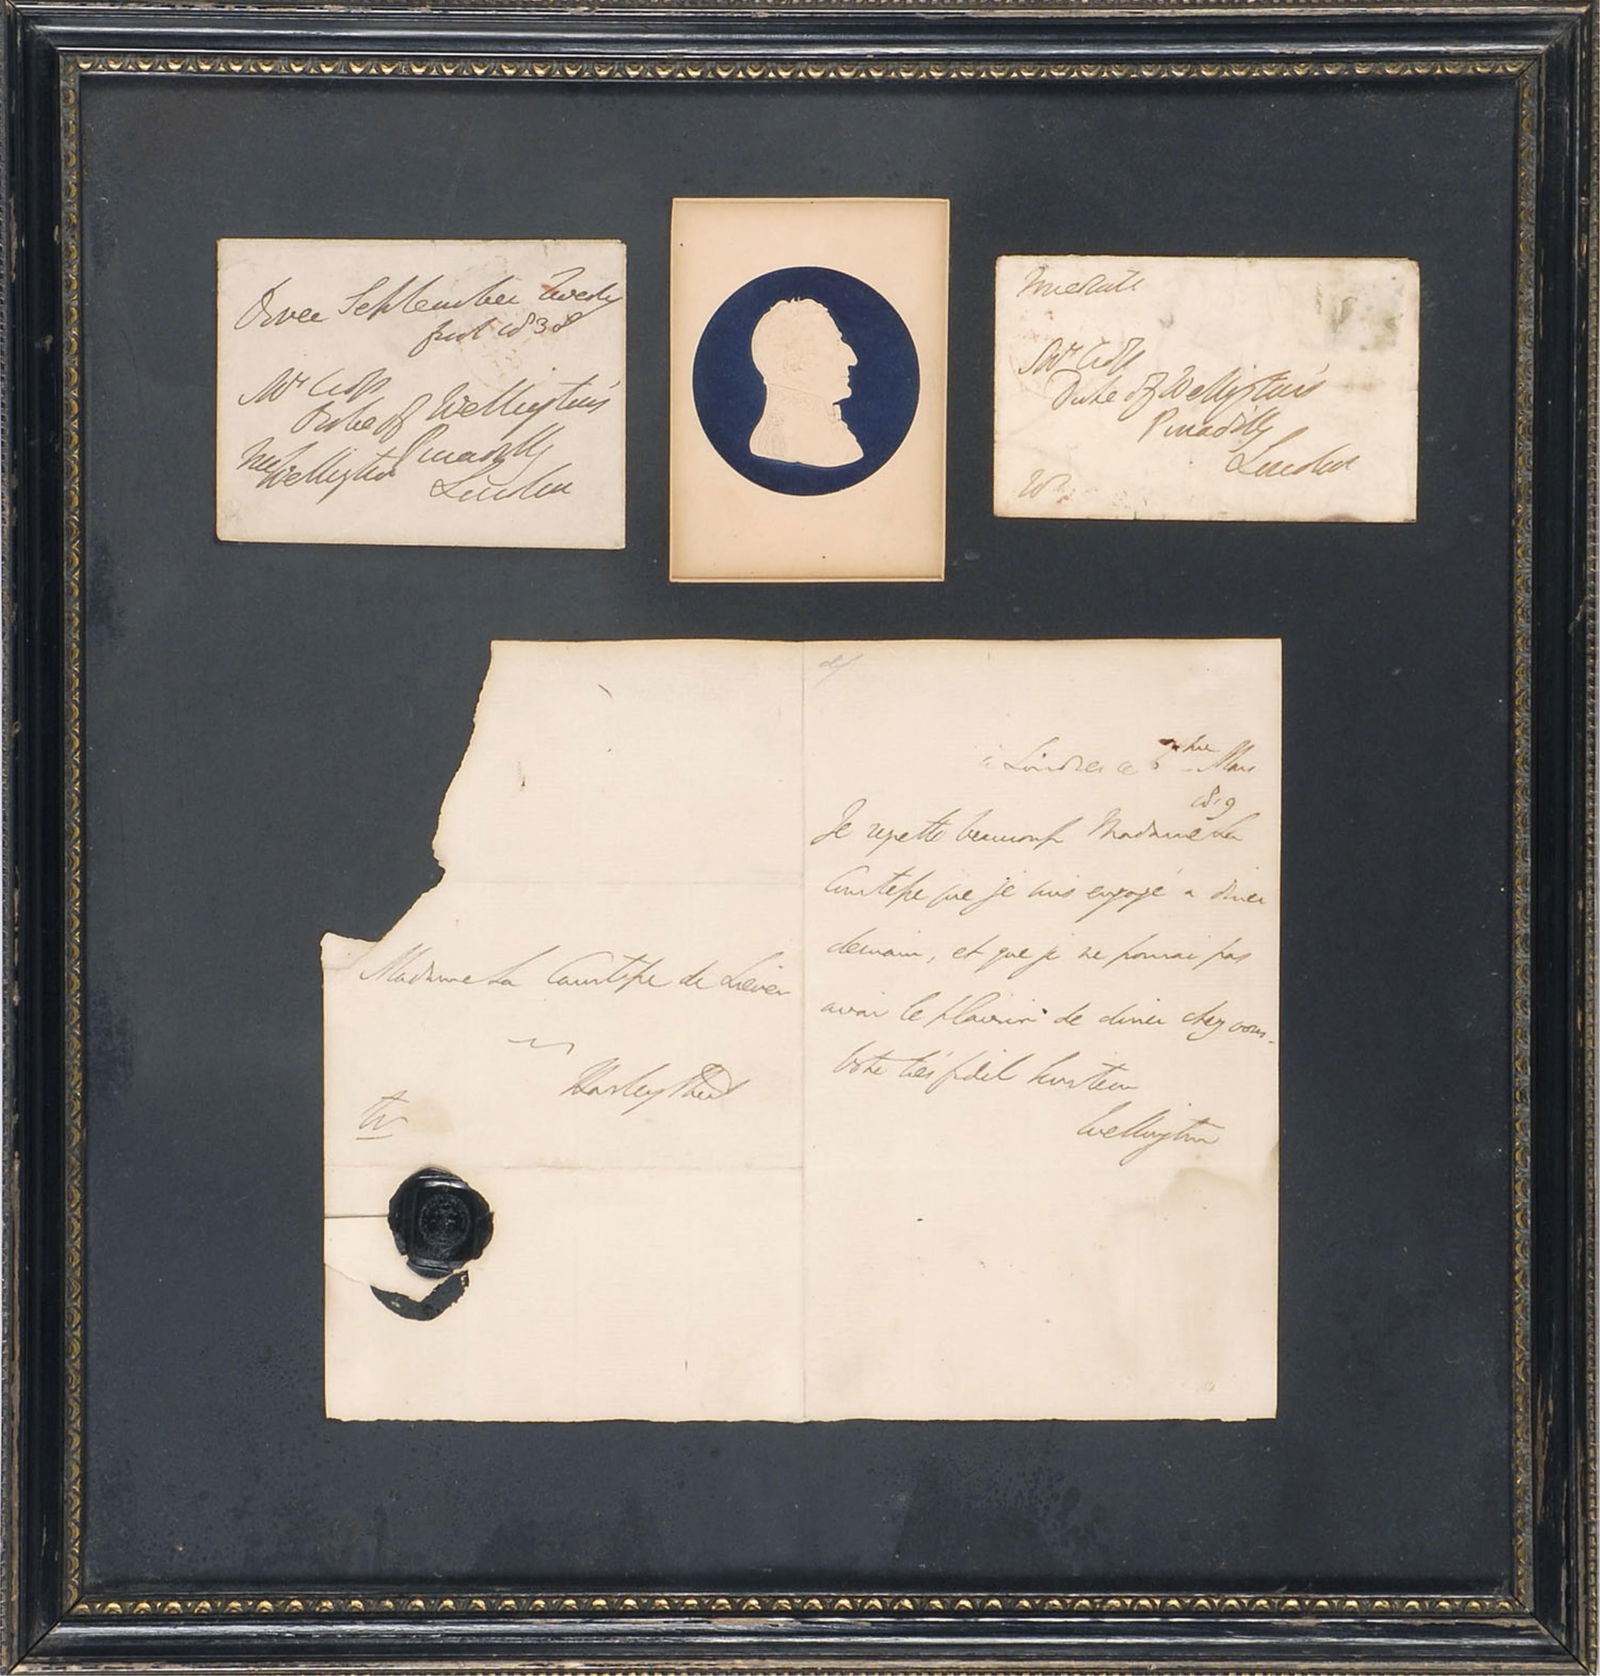 Dover September Twenty
first 1838
Mr Cross
Duke of Wellington's
Piccadilly
Wellington
London
Immediate
Mr Cross
Duke of Wellington's
Piccadilly
London
W
Madame La Comtesse de Lieven
Harley Street
W
à Londres ce 6 Mars
1819
Je regrette beaucoup Madame La
Comtesse que je suis engagé a diner
demain, et que je ne pourrai pas
avoir le plaisir de diner chez vous.
Votre très fidel Serviteur
Wellington